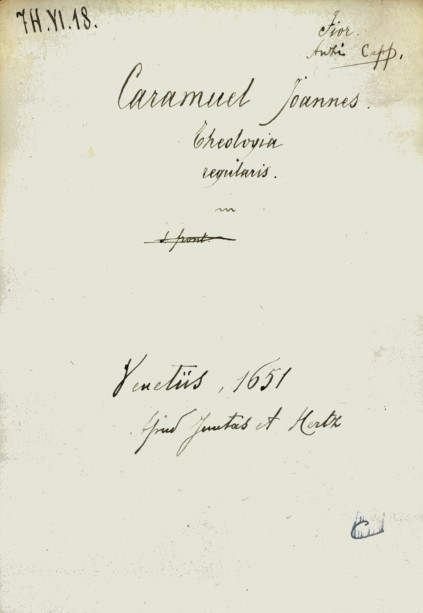 7H.VI.18.
Fior.
Caramuel Joannes.
Theologia
regularis.
Venetiis, 1651
Apud Juntas et Hertz